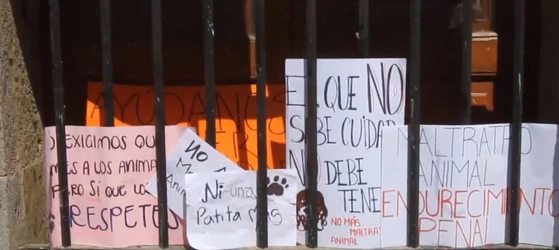 EXIGIMOS QUE
A LOS ANIMA
PERO SÍ QUE LOS
RESPETES
AYÚDANOS
NO
Ni una
Patita Más
EL QUE NO
SABE CUIDAR
NO DEBE
TENER
NO MÁS
MALTRATO
ANIMAL
MALTRATO
ANIMAL
ENDURECIMIENTO
PENAL